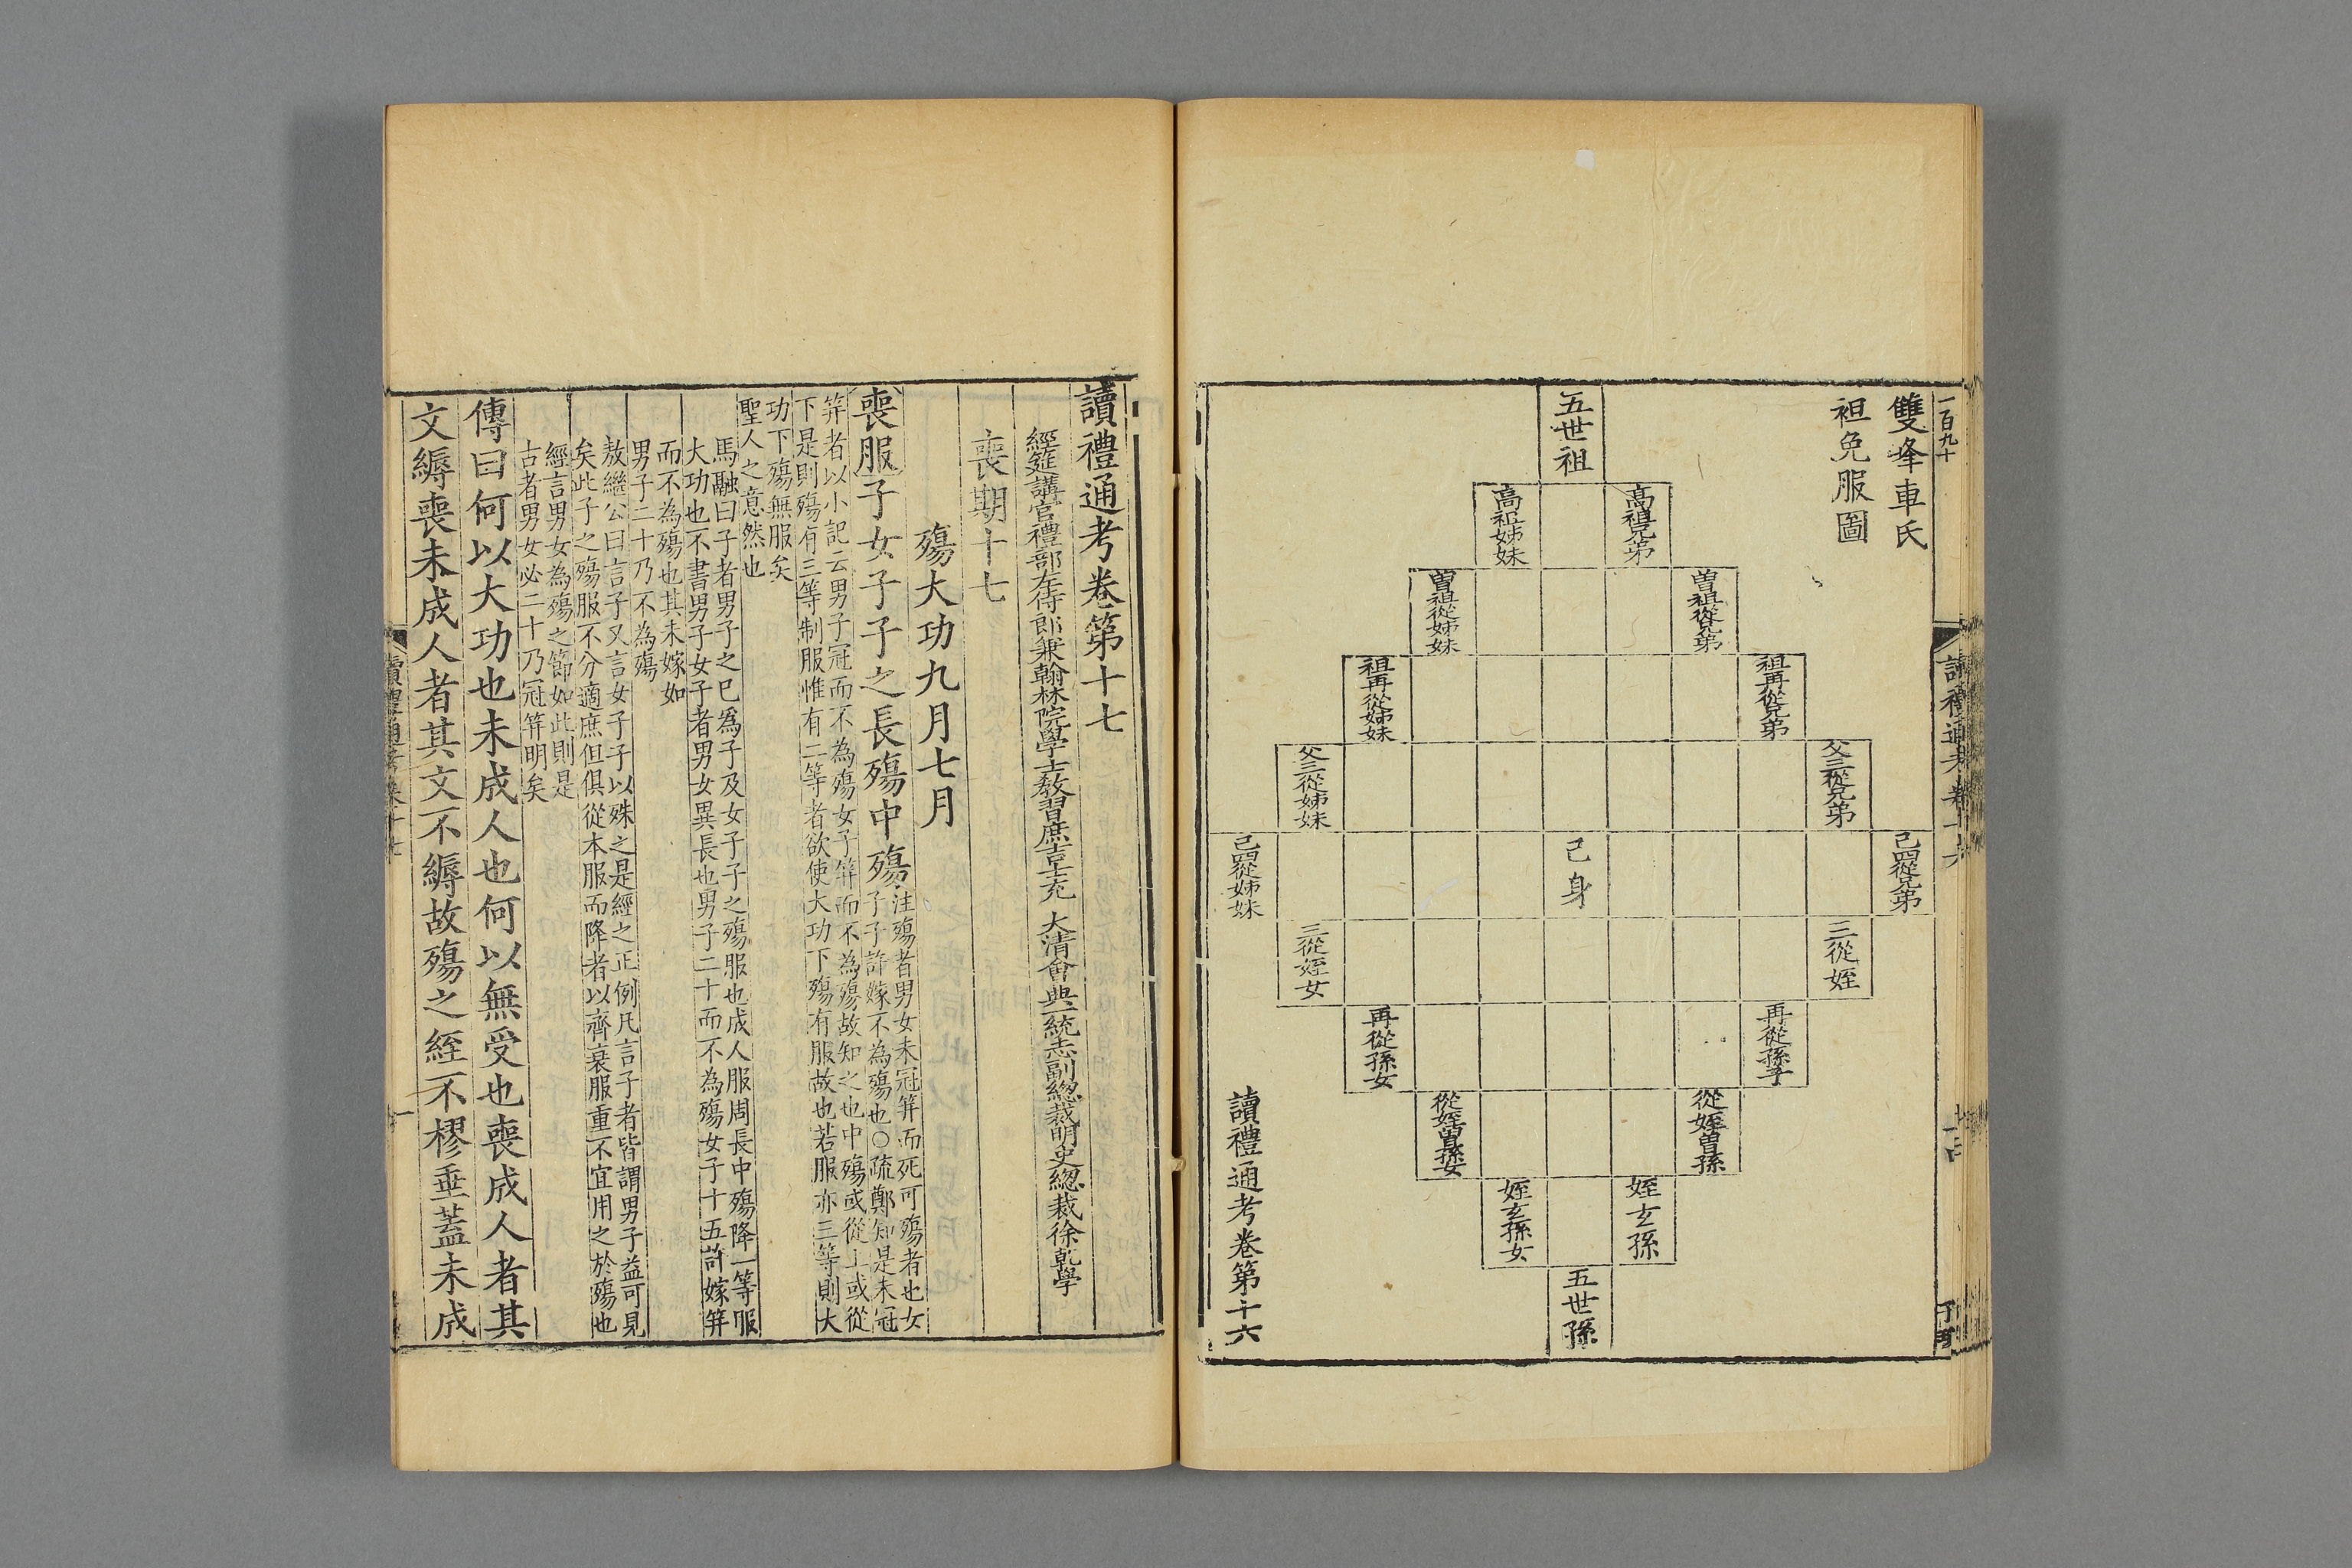 一百九十
讀禮通考卷十六
雙峯車氏
袒免服圖
五世祖
高祖兄弟
高祖姊妹
曽祖從兄弟
曽祖從姊妹
祖再從兄弟
祖再從姊妹
父三從兄弟
父三從姊妹
己四從兄弟
己身
己四從姊妹
三從姪
三從姪女
再從孫
再從孫女
從姪曽孫
從姪曽孫女
姪玄孫
姪玄孫女
五世孫
讀禮通考卷第十六
讀禮通考卷第十七
經筵講官禮部左侍郎兼翰林院學士教習庶吉士充 大清會典一統志副總裁明史總裁徐乾學
喪期十七
殤大功九月七月
喪服子女子子之長殤中殤
注殤者男女未冠笄而死可殤者也女
子子許嫁不為殤也○疏鄭知是未冠
笄者以小記云男子冠而不為殤女子笄而不為殤故知之也中殤或從上或從
下是則殤有三等制服惟有二等者欲使大功下殤有服故也若服亦三等則大
功下殤無服矣
聖人之意然也
馬融曰子者男子之已爲子及女子子之殤服也成人服周長中殤降一等服
大功也不書男子女子者男女異長也男子二十而不為殤女子十五許嫁笄
而不為殤也其未嫁如
男子二十乃不為殤
敖繼公曰言子又言女子子以殊之是經之正例凡言子者皆謂男子益可見
矣此子之殤服不分適庶但俱從本服而降者以齊衰服重不宜用之於殤也
經言男女為殤之節如此則是
古者男女必二十乃冠笄明矣
傳曰何以大功也未成人也何以無受也喪成人者其
文縟喪未成人者其文不縟故殤之絰不樛垂蓋未成
讀禮通考卷十七
一